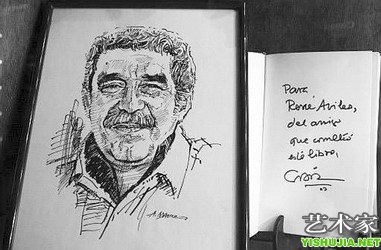 Para
René Avilés,
del amigo
que cometió
este libro,
艺术家
YISHUJIA.NET